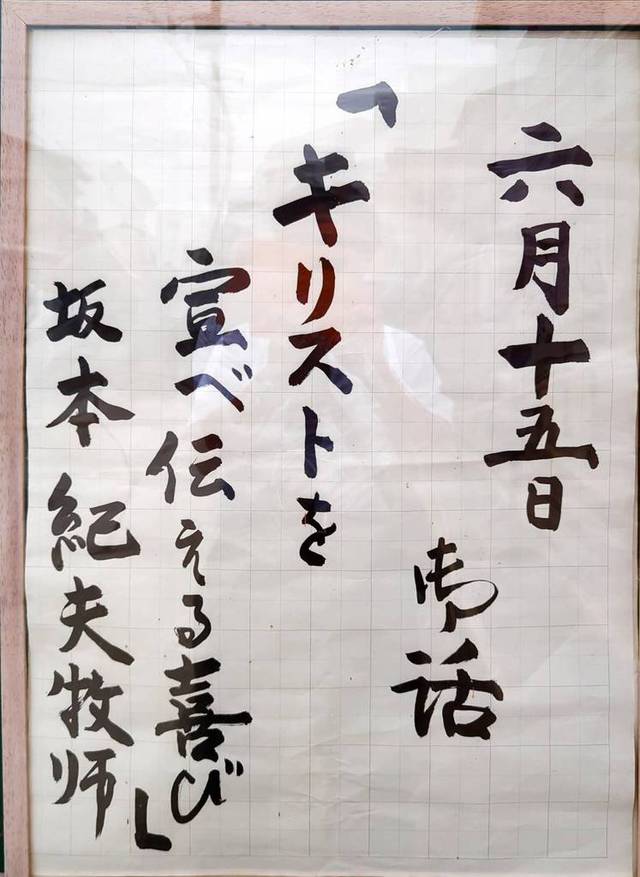 六月十五日
御話
「キリストを
宣べ伝える喜び」
坂本紀夫牧師